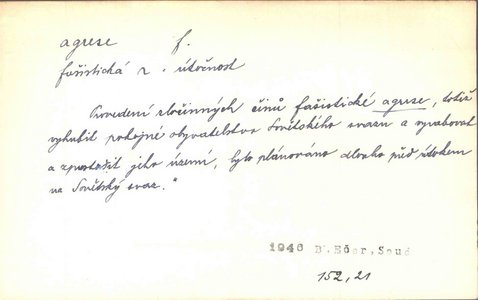 agrese f.
fašistická a. útočnost
Provedení zločinných činů fašistické agrese, totiž
vyhubit pokojné obyvatelstvo Sovětského svazu a vyrabovat
a zpustošit jeho území, bylo plánováno dlouho před útokem
na Sovětský svaz."
1946 B. Ečer, Soud
152,21